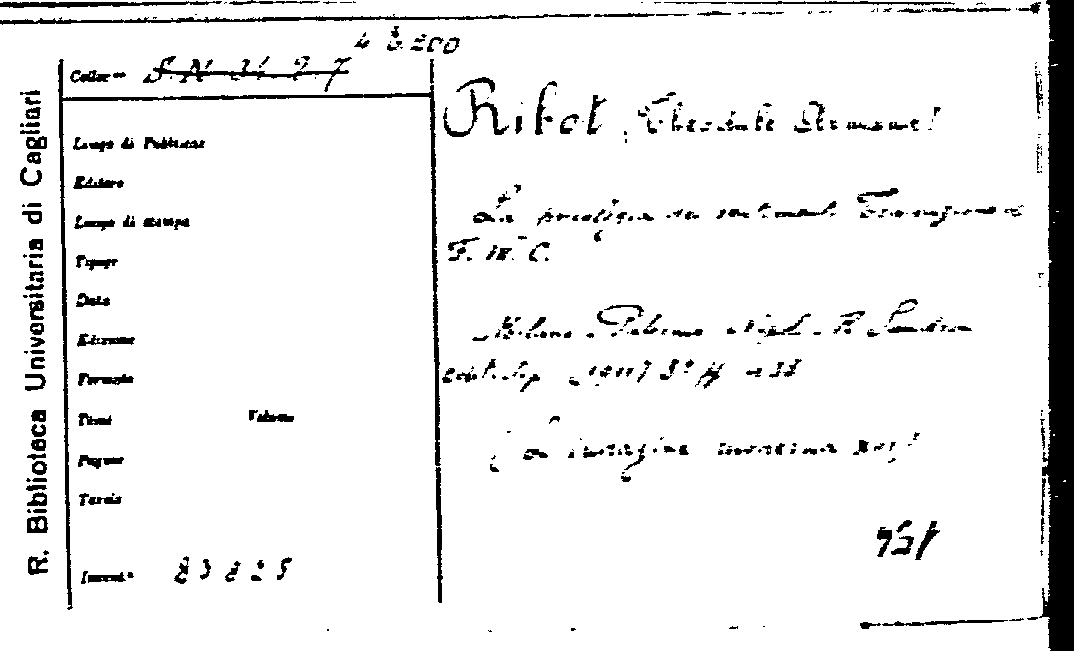 R. Biblioteca Universitaria di Cagliari
Colloc.ne S.N. 31.2.7
Luogo di Pubblicaz.
Editore
Luogo di stampa
Tipogr.
Data
Edizione
Formato
Tomi Volume
Pagine
Tavole
Invent.° 83825
Ribot (Théodule Armand)
La psicologia dei sentimenti Traduzione di
F. M. C.
Milano-Palermo Napoli R. Sandron
edit. tip. 8°